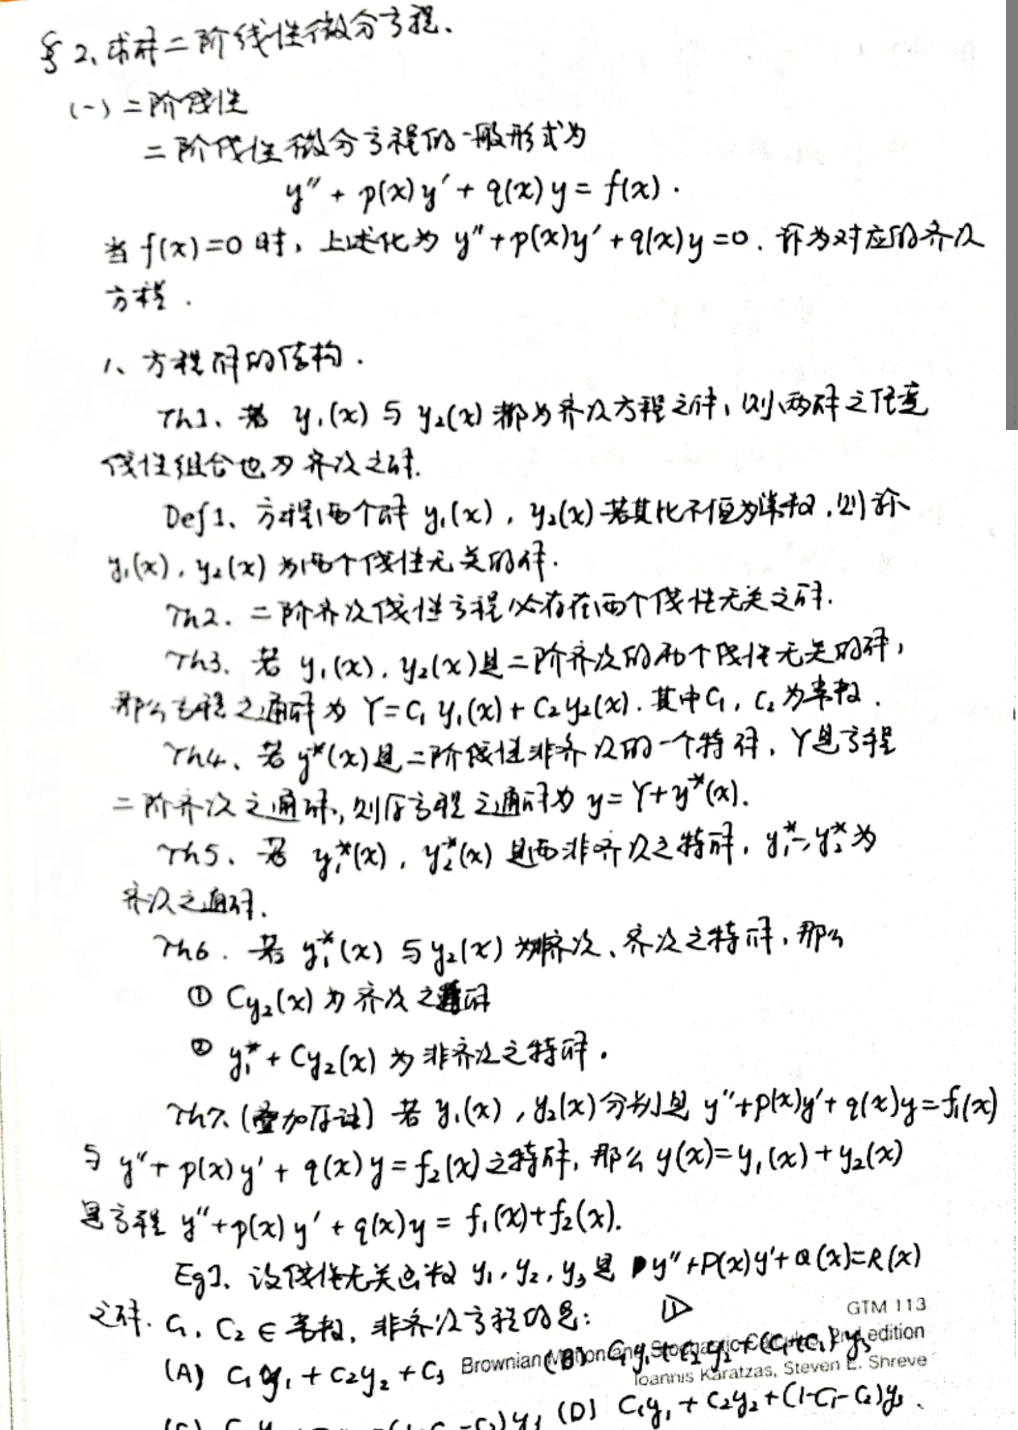 §2、求解二阶线性微分方程、
(一) 二阶线性
二阶线性微分方程的一般形式为
y″ + p(x)y′ + q(x)y = f(x).
当 f(x)=0 时, 上述化为 y″+p(x)y′+q(x)y=0. 称为对应的齐次
方程.
1、方程解的结构.
Th1、若 y₁(x) 与 y₂(x) 都为齐次方程之解, 则两解之任意
线性组合也为齐次之解.
Def1、方程两个解 y₁(x), y₂(x) 若其比不恒为常数, 则称
y₁(x), y₂(x) 为两个线性无关的解.
Th2. 二阶齐次线性方程必存在两个线性无关之解.
Th3. 若 y₁(x), y₂(x) 是二阶齐次的两个线性无关的解,
那么方程之通解为 Y=C₁y₁(x)+C₂y₂(x). 其中C₁, C₂为常数.
Th4、若 y*(x) 是二阶线性非齐次的一个特解, Y是方程
二阶齐次之通解, 则原方程之通解为 y=Y+y*(x).
Th5. 若 y₁*(x), y₂*(x) 是两非齐次之特解, y₁*-y₂*为
齐次之通解.
Th6. 若 y₁*(x) 与 y₂(x) 为非齐次、齐次之特解, 那么
① Cy₂(x) 为齐次之解
② y₁*+Cy₂(x) 为非齐次之特解.
Th7. (叠加原理) 若 y₁(x), y₂(x) 分别是 y″+p(x)y′+q(x)y=f₁(x)
与 y″+p(x)y′+q(x)y=f₂(x)之特解, 那么 y(x)=y₁(x)+y₂(x)
是方程 y″+p(x)y′+q(x)y = f₁(x)+f₂(x).
Eg1. 设线性无关函数 y₁, y₂, y₃ 是 y″+P(x)y′+Q(x)=R(x)
之解. C₁, C₂ ∈ 常数, 非齐次方程的是: D
GTM 113
(A) C₁y₁+C₂y₂+C₃ (B) C₁y₁+C₂y₂+(C₁+C₂)y₃
Brownian Motion and Stochastic Calculus, 2nd edition
Ioannis Karatzas, Steven E. Shreve
(D) C₁y₁+C₂y₂+(1-C₁-C₂)y₃.